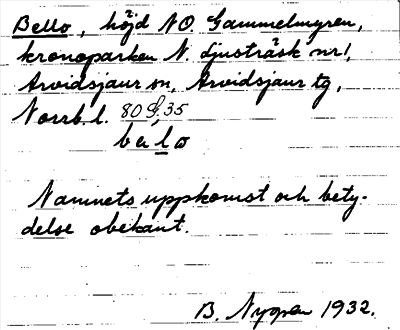 Bello, höjd NO. Gammelmyren,
kronoparken N. Ljusträsk nr 1,
Arvidsjaur sn, Arvidsjaur tg,
Norrb. l. 80 35
balo
Namnets uppkomst och bety-
delse obekant.
B. Nygren 1932.